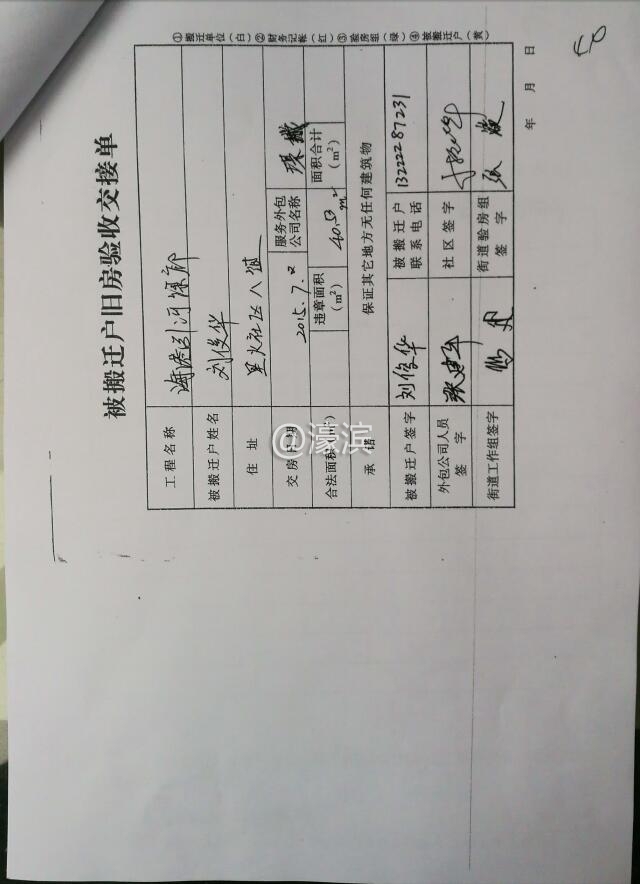 被搬迁户旧房验收交接单
①搬迁单位（白）②财务记帐（红）③验房组（绿）④被搬迁户（黄）
工程名称
被搬迁户姓名 刘俊华
住址 星火社区八组
交房日期 2015.7.2 服务外包公司名称
合法面积(m²) 违章面积(m²) 40.5m² 面积合计(m²)
承诺 保证其它地方无任何建筑物
被搬迁户签字 刘俊华 被搬迁户联系电话 13222287231
外包公司人员签字 张建华 社区签字
街道工作组签字 街道验房组签字 张
年 月 日
@濠滨